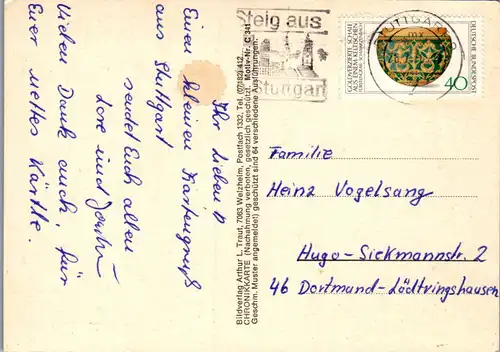 Ihr Lieben!
Einen kleinen Kartengruß
aus Stuttgart
sendet Euch allen
Lore und
Vielen Dank auch, für
Euer nettes Kärtle.
Bildverlag Arthur L. Traut, 7063 Welzheim, Postfach 1332, Tel. (07182) 412
CHRONIKKARTE (Nachahmung verboten, gesetzlich geschützt). Motiv-Nr. C 341
Geschm. Muster angemeldet) geschützt sind 64 verschiedene Ausführungen.
Steig aus
Stuttgart
STUTTGART
GOLDVERZIERTE SCHALE
AUS EINEM KELTISCHEN
DEUTSCHE BUNDESPOST
40
Familie
Heinz Vogelsang
Hugo-Sickmannstr. 2
46 Dortmund-Lüdtringshausen